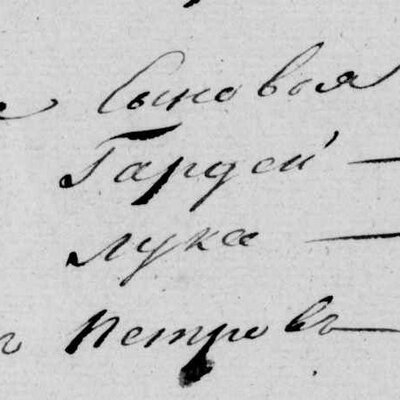 Сыновья
Гардей —
лука —
Петровъ —